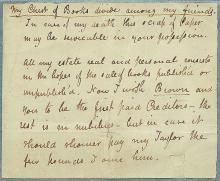 My Chest of Books divide among my friends
In case of my death this scrap of Paper
may be serviceable in your possession.
All my estate real and personal consists
in the hopes of the sale of books publish'd or
unpublish'd. Now I wish Brown and
you to be the first paid Creditors — the
rest is in nubibus — but in case it
should shower pay my Taylor the
few pounds I owe him.